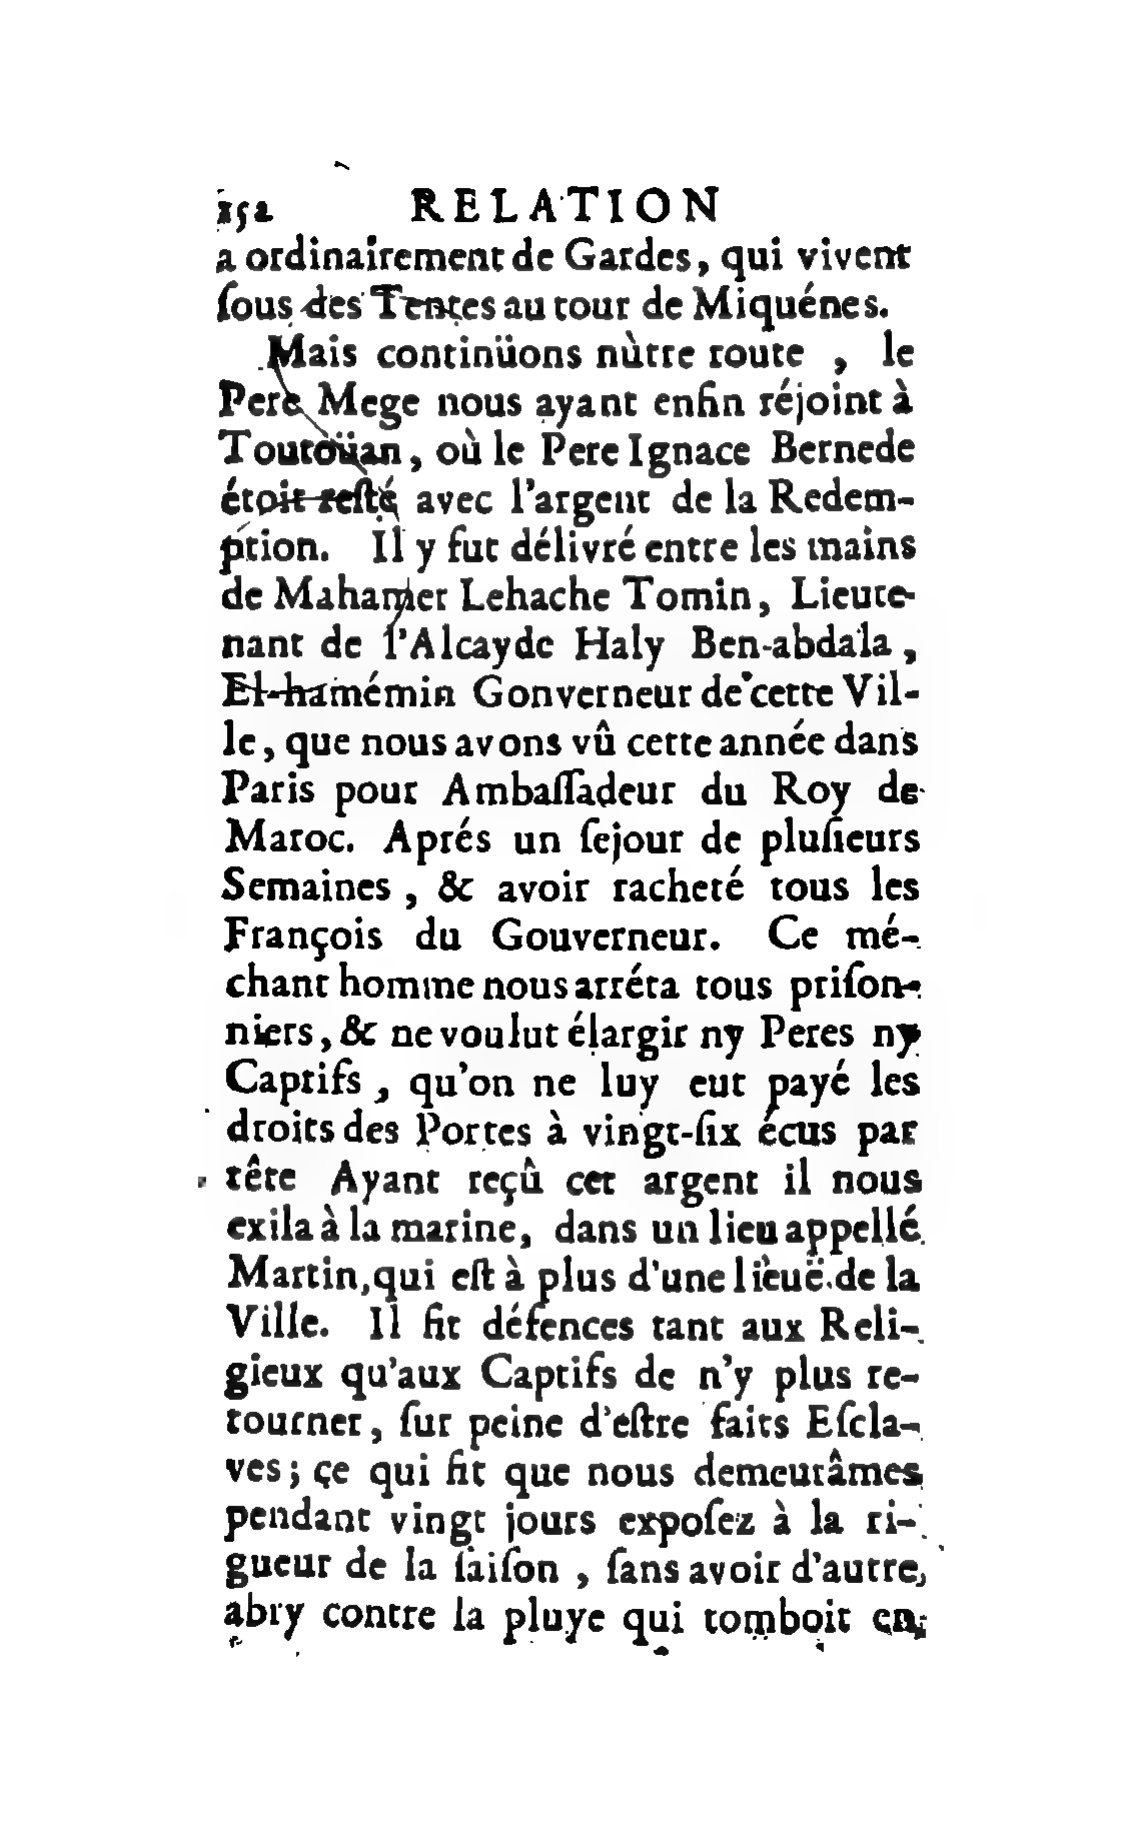 152 RELATION
a ordinairement de Gardes, qui vivent
ſous des Tentes au tour de Miquénes.
Mais continüons nùtre route , le
Pere Mege nous ayant enfin réjoint à
Toutòüan, où le Pere Ignace Bernede
étoit reſté avec l'argent de la Redem-
ption. Il y fut délivré entre les mains
de Mahamer Lehache Tomin, Lieute-
nant de l'Alcayde Haly Ben-abdala ,
El-hamémin Gonverneur de cette Vil-
le, que nous avons vû cette année dans
Paris pour Ambaſſadeur du Roy de
Maroc. Aprés un ſejour de pluſieurs
Semaines , & avoir racheté tous les
François du Gouverneur. Ce mé-
chant homme nous arréta tous priſon-
niers, & ne voulut élargir ny Peres ny
Captifs , qu'on ne luy eut payé les
droits des Portes à vingt-ſix écus par
tête Ayant reçû cet argent il nous
exila à la marine, dans un lieu appellé
Martin, qui eſt à plus d'une lieuë de la
Ville. Il fit défences tant aux Reli-
gieux qu'aux Captifs de n'y plus re-
tourner, ſur peine d'eſtre faits Eſcla-
ves; çe qui fit que nous demeurâmes
pendant vingt jours expoſez à la ri-
gueur de la ſaiſon , ſans avoir d'autre
abry contre la pluye qui tomboit en